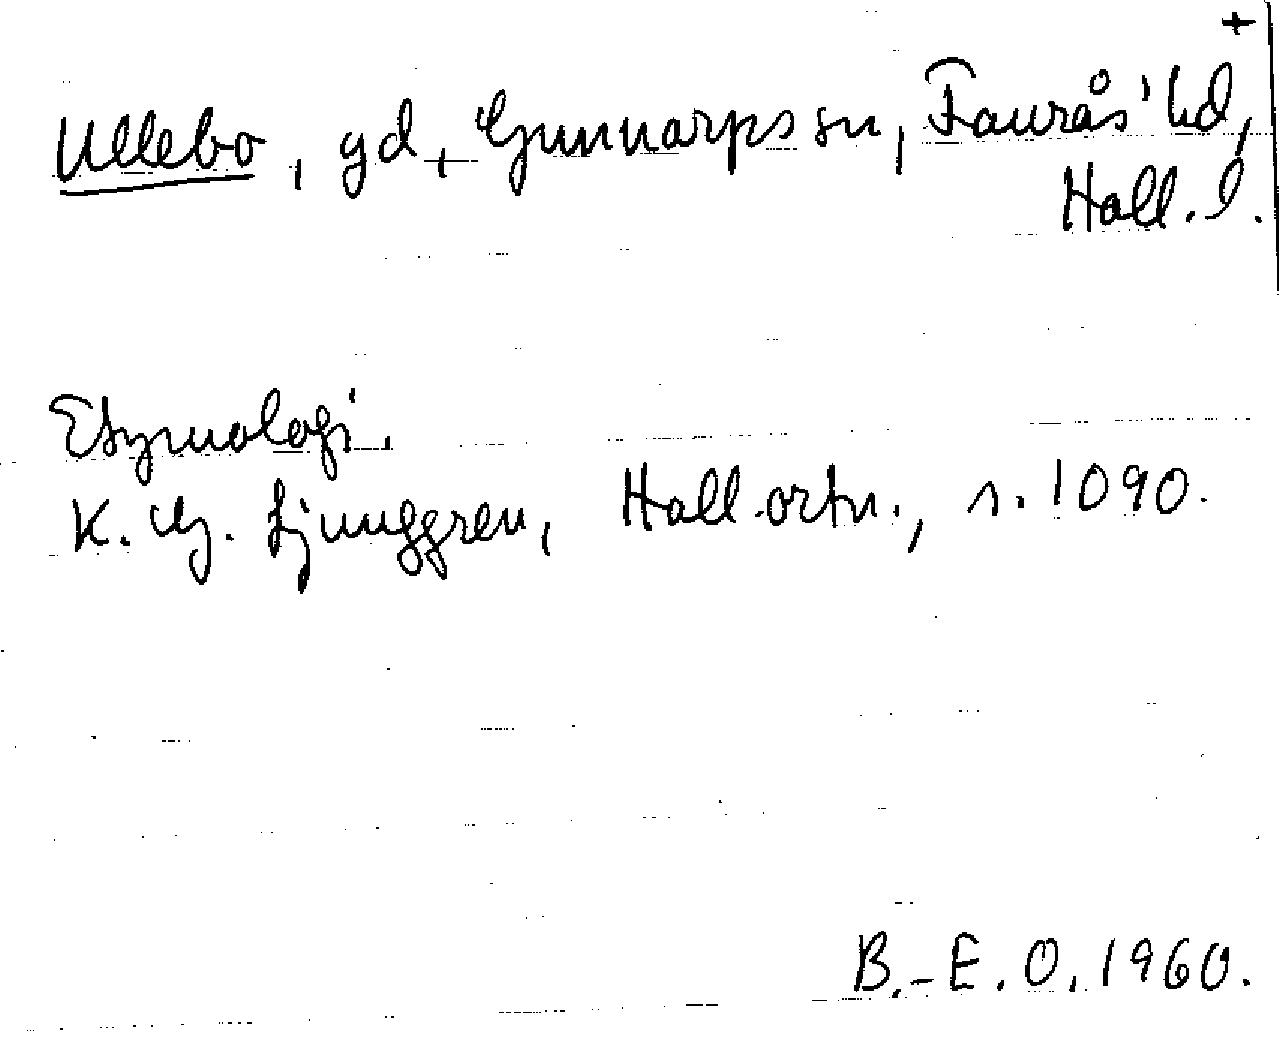 +
Ullebo, gd, Gunnarps sn, Faurås' hd,
Hall. l.
Etymologi.
K. G. Ljunggren, Hall. ortn., s. 1090.
B.-E. O. 1960.